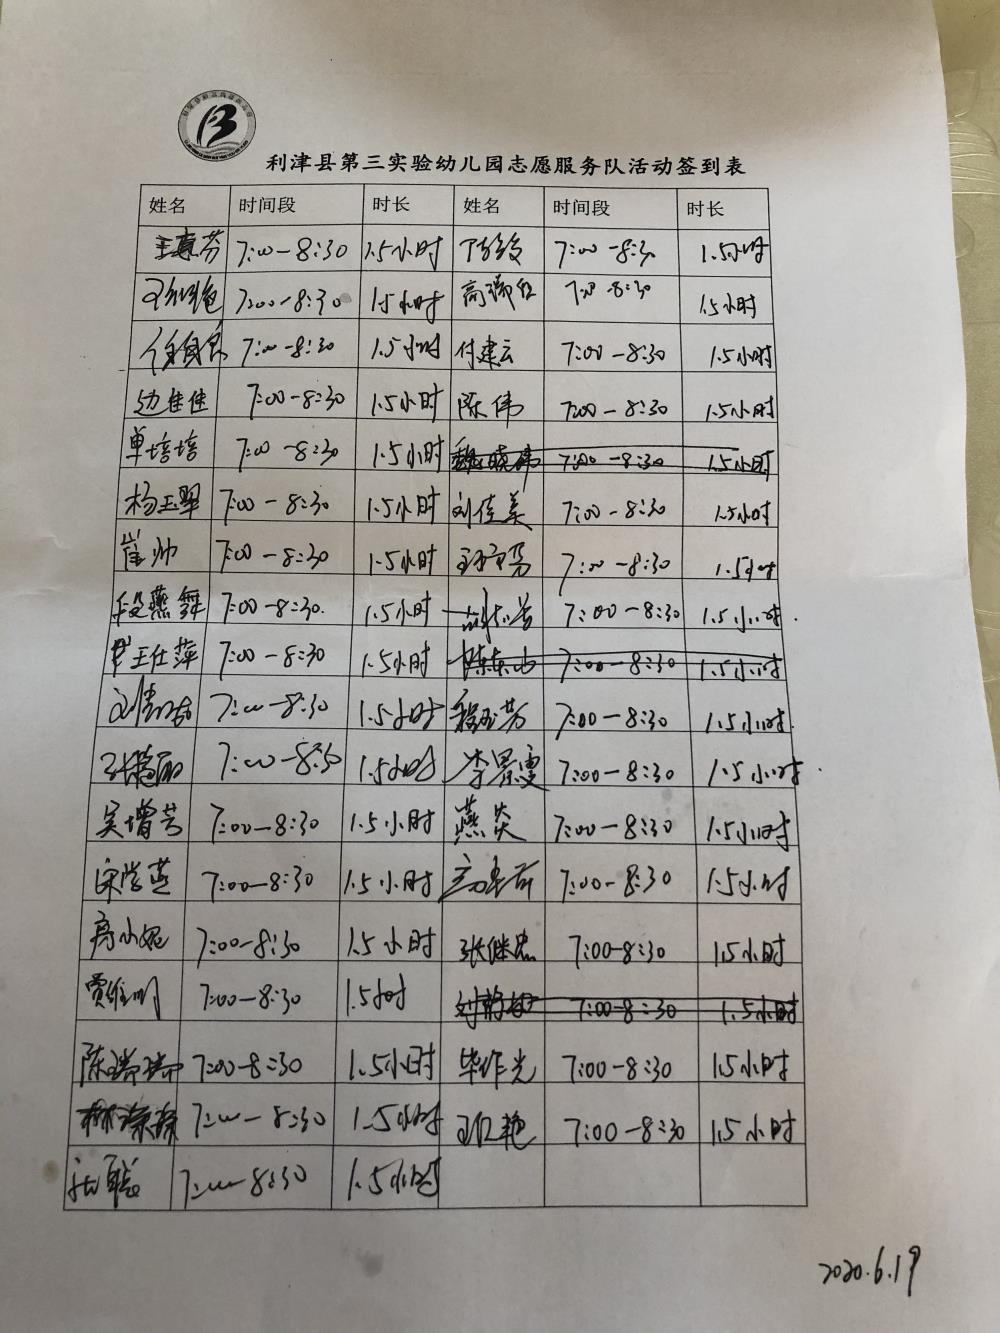 利津县第三实验幼儿园志愿服务队活动签到表
姓名 时间段 时长 姓名 时间段 时长
王真芬 7:00-8:30 1.5小时 7:00-8:30 1.5小时
7:00-8:30 1.5小时 高瑞红 7:00-8:30 1.5小时
7:00-8:30 1.5小时 付建云 7:00-8:30 1.5小时
边佳佳 7:00-8:30 1.5小时 陈伟 7:00-8:30 1.5小时
单培培 7:00-8:30 1.5小时 魏晓伟 7:00-8:30 1.5小时
杨玉翠 7:00-8:30 1.5小时 刘佳美 7:00-8:30 1.5小时
崔帅 7:00-8:30 1.5小时 7:00-8:30 1.5小时
段燕舞 7:00-8:30. 1.5小时 7:00-8:30 1.5小时.
王仕萍 7:00-8:30 1.5小时 7:00-8:30 1.5小时
7:00-8:30 1.5小时 程玉芳 7:00-8:30 1.5小时.
7:00-8:30 1.5小时 李景雯 7:00-8:30 1.5小时.
吴增芳 7:00-8:30 1.5小时 燕炎 7:00-8:30 1.5小时
宋学燕 7:00-8:30 1.5小时 7:00-8:30 1.5小时
高小妮 7:00-8:30 1.5小时 张继忠 7:00-8:30 1.5小时
贾维明 7:00-8:30 1.5小时 刘静敏 7:00-8:30 1.5小时
陈瑞瑞 7:00-8:30 1.5小时 毕作光 7:00-8:30 1.5小时
7:00-8:30 1.5小时 王红艳 7:00-8:30 1.5小时
7:00-8:30 1.5小时
2020.6.19